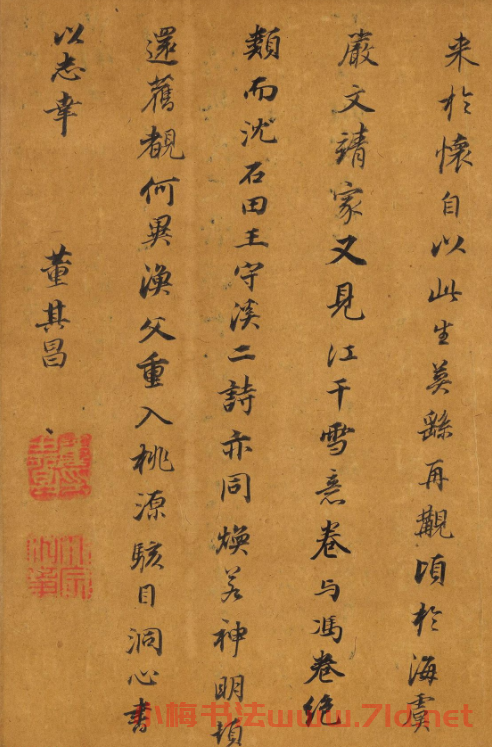 来於懷自以此生莫繇再觀頃於海虞
嚴文靖家又見江干雪意卷与馮卷絕
類而沈石田王守溪二詩亦同煥若神明頓
還舊觀何異漁父重入桃源駭目洞心書
以志幸
董其昌
小梅书法www.7ld.net